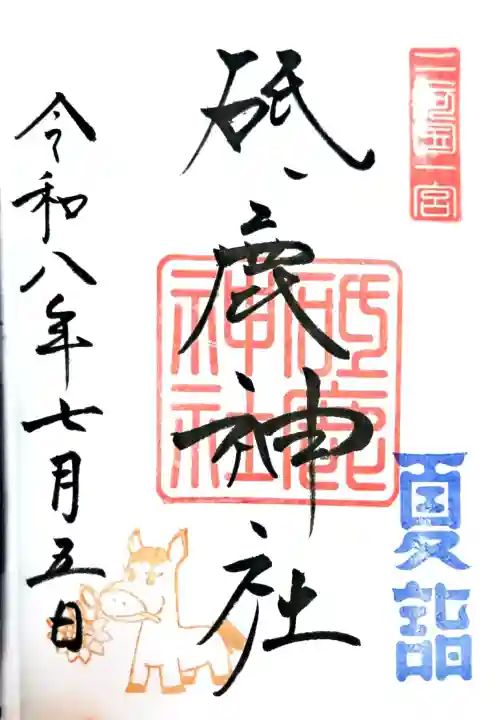 三河国一宮
砥鹿神社
砥鹿神社
夏詣
令和八年七月五日